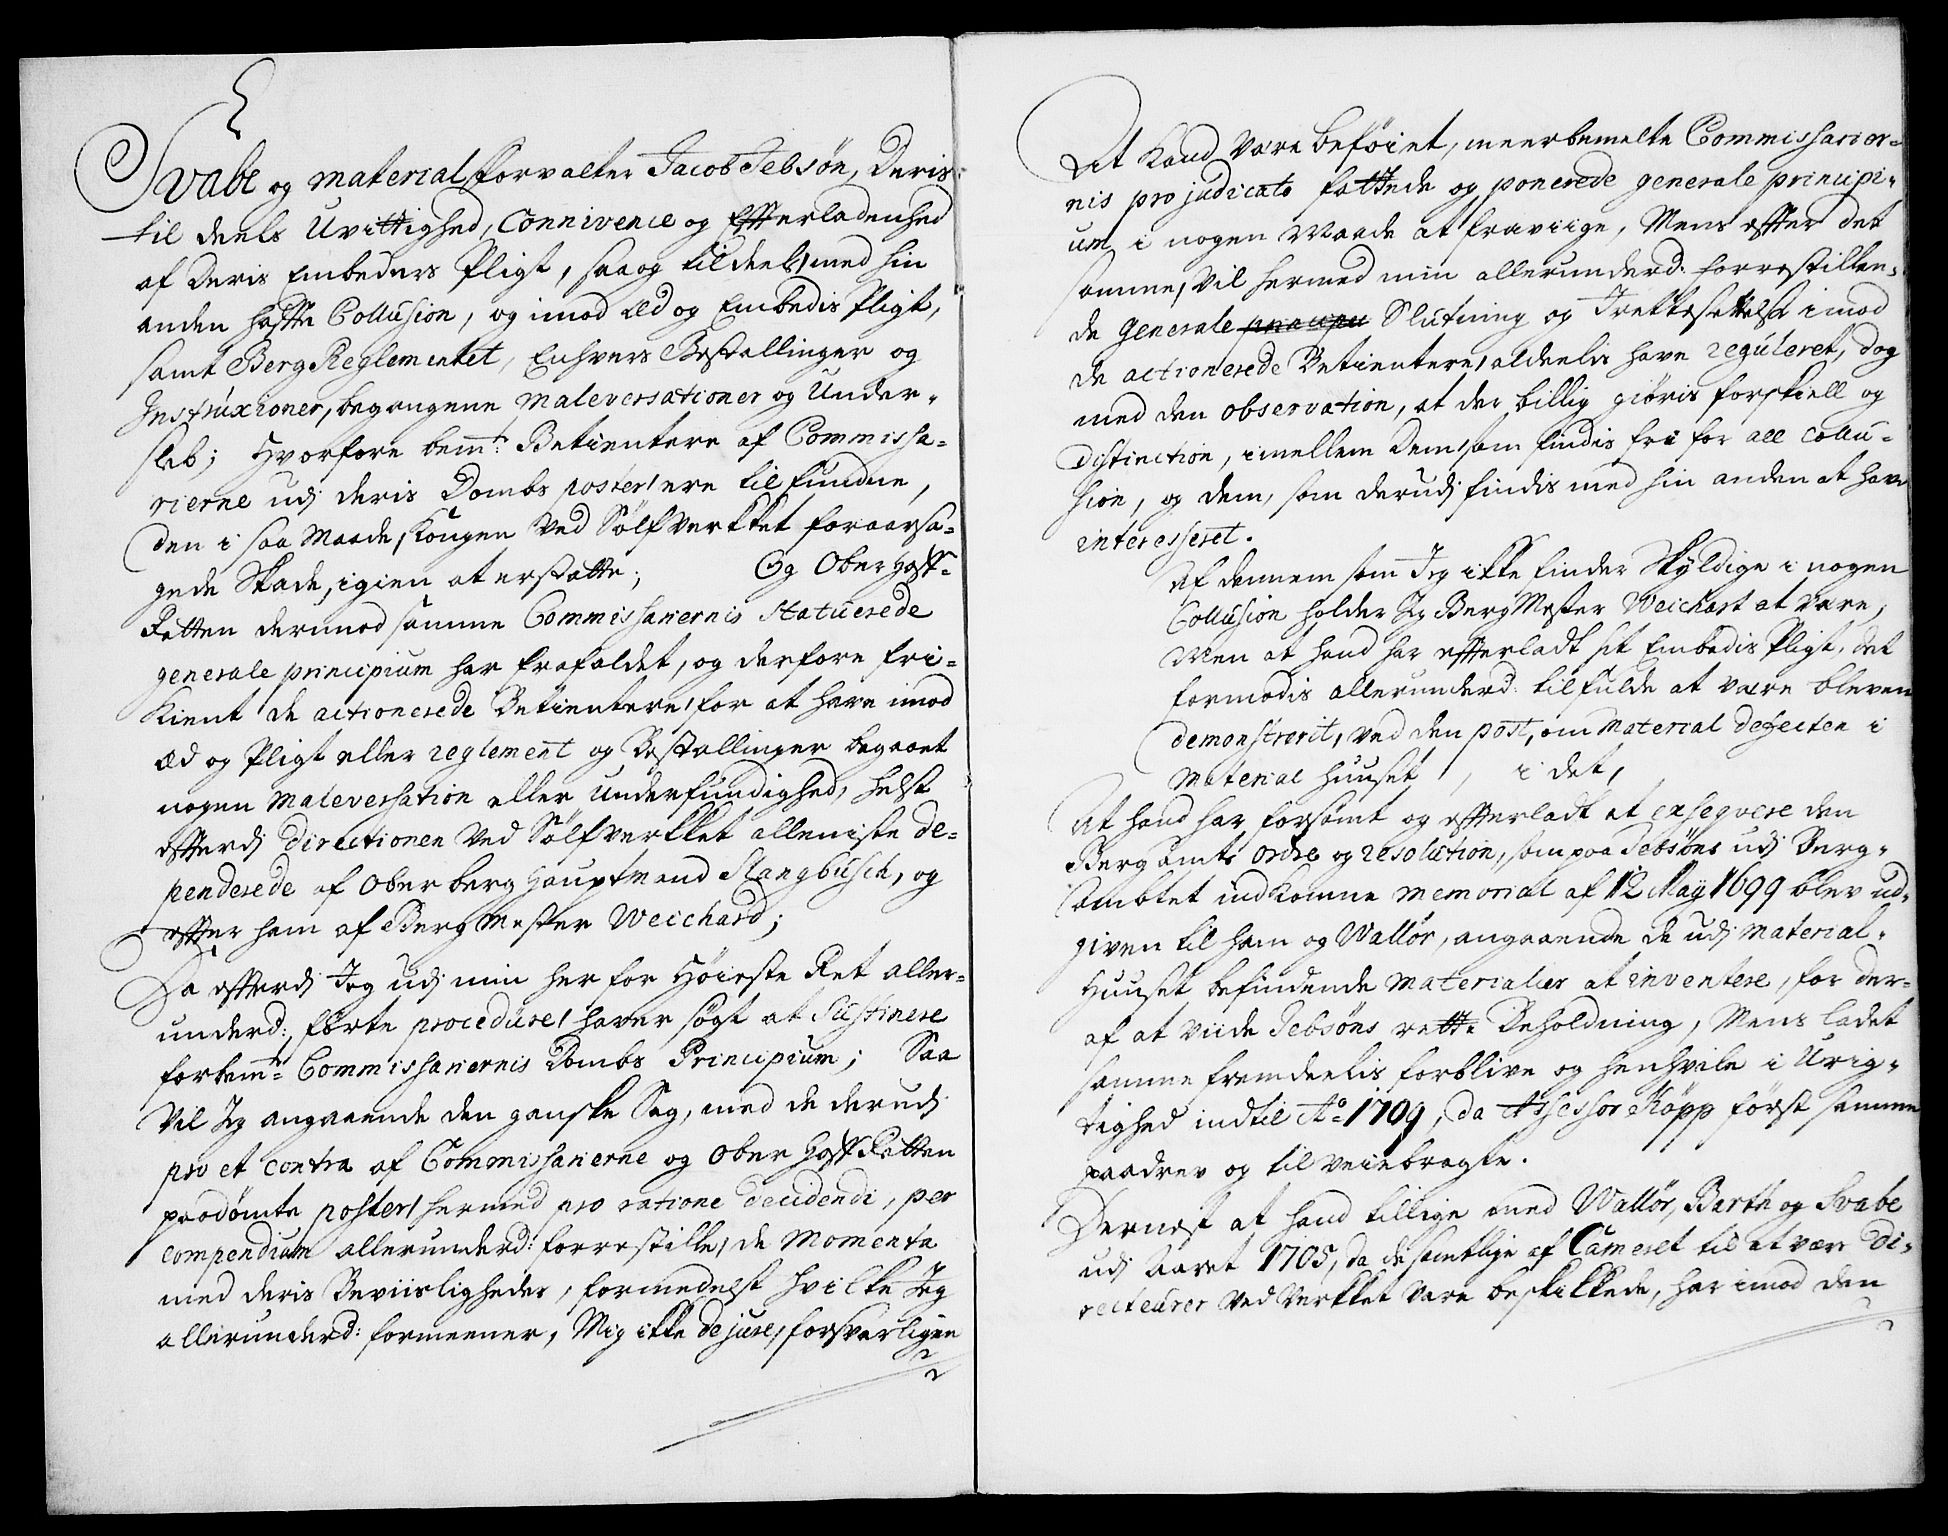 Svabe og material forvalter Jacob Jebsøn, Deris
til deels Uvittighed, Connivence og Efterladenhed
af Deris Embeders Pligt, saa og til deels, med hin
anden hafte Collusion, og imod æd og Embedis Pligt,
samt Berg Reglementet, Enhvers Bestallinger og
Instruxioner, begangene Maleversationer og Under-
sleb; Hvorfore bemte: Betientere af Commissa-
rierne udj deris Dombs poster, ere tilfundne,
den i saa Maade, Kongen ved Sølfverkket foraarsa-
gede Skade, igien at erstatte; Og Ober Hoff-
Retten derimod samme Commissariernis statuerede
generale principium har frafaldet, og derfore fri-
kient de actionerede Betientere, for at have imod
æd og Pligt eller reglement og Bestallinger begaaet
nogen Maleversation eller Underfundighed, helst
efterdj Directionen ved Sølfverkket alleniste de-
penderede af Oberberg Hauptmand Slangbusch, og
efter ham af Berg Mester Weichard;
Da efterdj Jeg udj min her for Høieste Ret aller-
underd: førte procedure, haver søgt at Sustinere
forbemte Commissariernis Dombs Principium; Saa
vil Jeg angaaende den ganske Sag, med de derudj
pro et contra af Commissarierne og Ober Hoff Retten
paadømte poster, hermed pro ratione decidendi, per
compendium allerunderd: forrestille, de Momenta
med deris Beviisligheder, formedelst hvilke Jeg
allerunderd: formeener, Mig ikke de jure, forsvarligen
At kand være beføiet, meerbemelte Commissarier-
nis pro judicato fattede og ponerede generale principi-
um i nogen Maade at fraviige, Mens efter det
samme, vil hermed min allerunderd: forrestillen-
de Generale principii Slutning og Irettesettelse imod
de actionerede Betientere, aldeelis have reguleret, dog
med den observation, at der billig giøris forskiell og
Distinction, imellem Dem, som findis fri for all Collu-
sion, og dem, som derudj findis med hin anden at have
interesseret.
Af dennem som Jeg ikke finder Skyldige i nogen
Collusion holder Jeg Berg Mester Weichart at være,
Men at hand har efterladt sit Embedis Pligt, det
formodis allerunderd: tilfulde at være bleven
demonstrerit, ved den post, om Material defecten i
Material Huuset, i det,
At hand har forsømt og efterladt at exseqvere den
Bergamts Ordre og resolution, som paa Jebsøns udj Berg-
Ambtet indkomne Memorial af 12 Maij 1699 blev ud-
given til ham og Wallør, angaaende de udj Material-
Huuset befindende Materialier at inventere, for der-
af at viide Jebsøns rette Beholdning, Mens ladet
samme fremdeelis forblive og henhvile i Urig-
tighed indtil Ao 1709, da Assessor Köpp først samme
paadrev og til veiebragte.
Dernest at hand tillige med Wallør, Barth og Svabe
udj Aaret 1705, da de samtlige af Cameret til at være Di-
recteurer ved Verkket vare beskikkede, har imod den